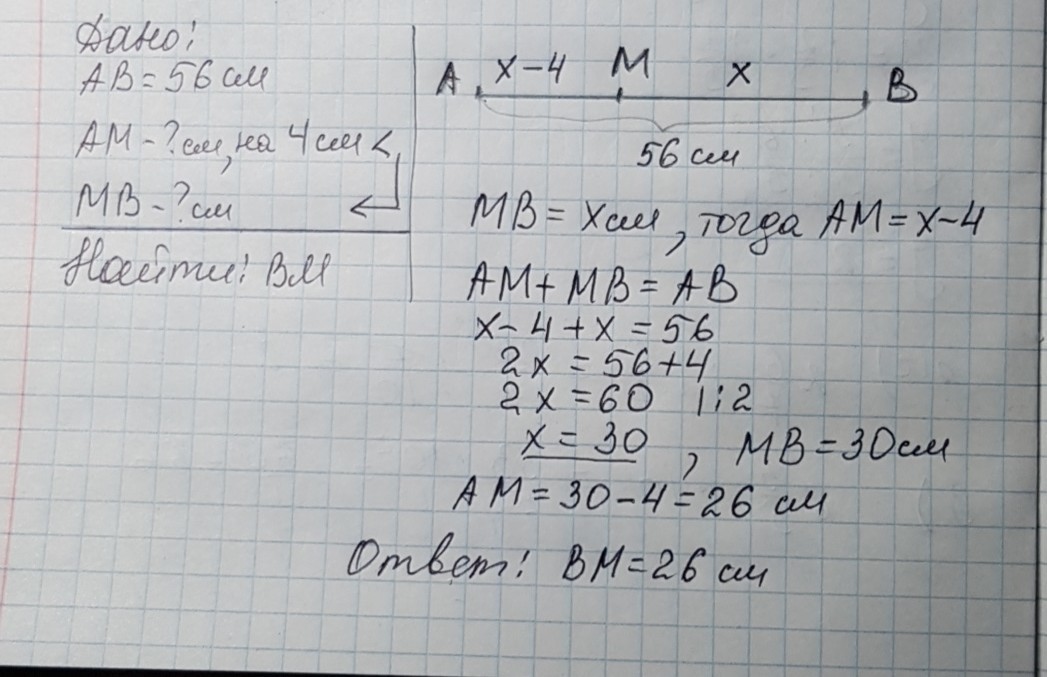 Дано:
AB = 56 см
AM - ? см, на 4 см <
MB - ? см
Найти: BM
A x-4 M x B
56 см
MB = x см, тогда AM = x-4
AM + MB = AB
x - 4 + x = 56
2x = 56+4
2x = 60 |:2
x = 30, MB = 30 см
AM = 30 - 4 = 26 см
Ответ: BM = 26 см